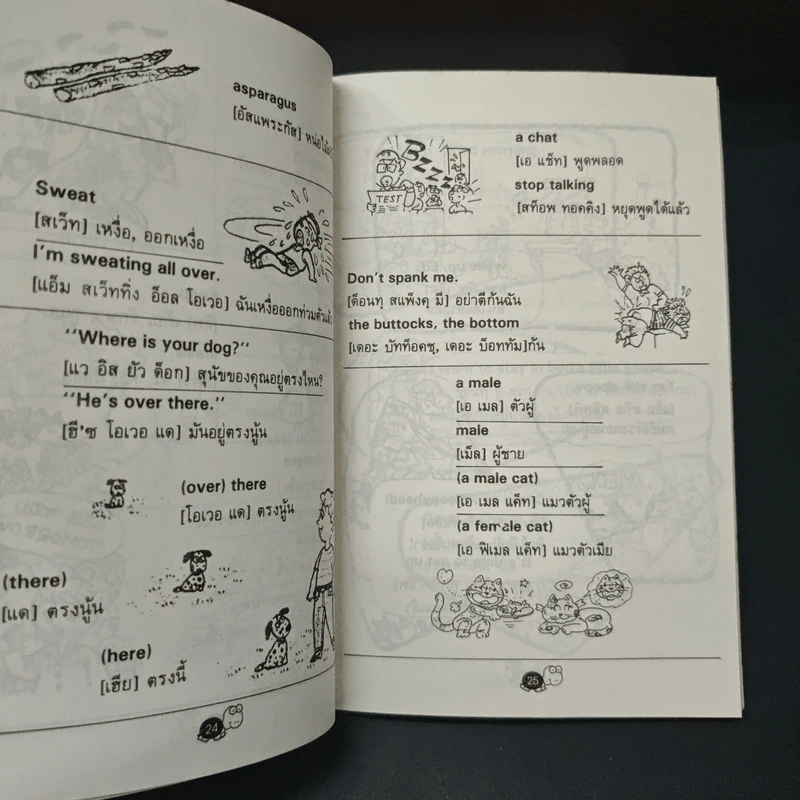 asparagus
[อัสแพระกัส] หน่อไม้
Sweat
[สเว็ท] เหงื่อ, ออกเหงื่อ
I'm sweating all over.
[แอ็ม สเว็ททิ่ง อ็อล โอเวอ] ฉันเหงื่อออกท่วมตัวแล้ว
"Where is your dog?"
[แว อิส ยัว ด็อก] สุนัขของคุณอยู่ตรงไหน?
"He's over there."
[ฮี'ซ โอเวอ แด] มันอยู่ตรงนู้น
(over) there
[โอเวอ แด] ตรงนู้น
(there)
[แด] ตรงนู้น
(here)
[เฮีย] ตรงนี้
24
BZZZZ
TEST
a chat
[เอ แช็ท] พูดพลอด
stop talking
[สท็อพ ทอคคิง] หยุดพูดได้แล้ว
Don't spank me.
[ด็อนทฺ สแพ็งคฺ มี] อย่าตีก้นฉัน
the buttocks, the bottom
[เดอะ บัทท็อคซฺ, เดอะ บ็อททัม]ก้น
a male
[เอ เมล] ตัวผู้
male
[เม็ล] ผู้ชาย
(a male cat)
[เอ เมล แค็ท] แมวตัวผู้
(a female cat)
[เอ ฟีเมล แค็ท] แมวตัวเมีย
25